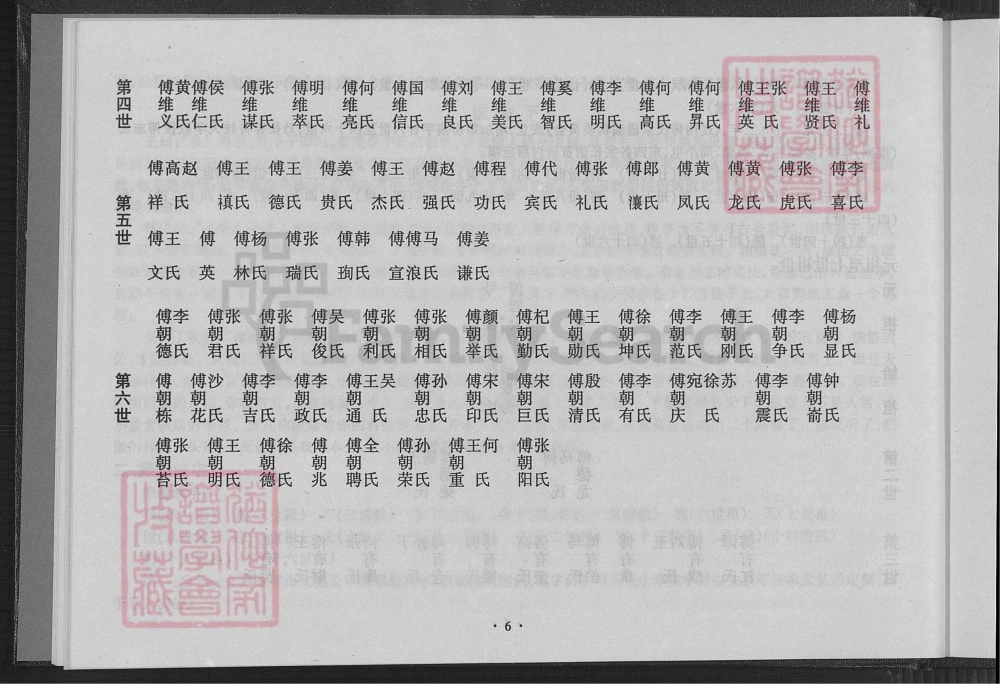 第四世
傅黄傅侯 傅张 傅明 傅何 傅国 傅刘 傅王 傅奚 傅李 傅何 傅何 傅王张 傅王 傅
维 维 维 维 维 维 维 维 维 维 维 维 维 维 维
义氏仁氏 谋氏 萃氏 亮氏 信氏 良氏 美氏 智氏 明氏 高氏 昇氏 英 氏 贤氏 礼
第五世
傅高赵 傅王 傅王 傅姜 傅王 傅赵 傅程 傅代 傅张 傅郎 傅黄 傅黄 傅张 傅李
祥 氏 禛氏 德氏 贵氏 杰氏 强氏 功氏 宾氏 礼氏 瀼氏 凤氏 龙氏 虎氏 喜氏
傅王 傅 傅杨 傅张 傅韩 傅傅马 傅姜
文氏 英 林氏 瑞氏 珣氏 宣浪氏 谦氏
第六世
傅李 傅张 傅张 傅吴 傅张 傅张 傅颜 傅杞 傅王 傅徐 傅李 傅王 傅李 傅杨
朝 朝 朝 朝 朝 朝 朝 朝 朝 朝 朝 朝 朝 朝
德氏 君氏 祥氏 俊氏 利氏 相氏 举氏 勤氏 勋氏 坤氏 范氏 刚氏 争氏 显氏
傅 傅沙 傅李 傅李 傅王吴 傅孙 傅宋 傅宋 傅殷 傅李 傅宛徐苏 傅李 傅钟
朝 朝 朝 朝 朝 朝 朝 朝 朝 朝 朝 朝 朝
栋 花氏 吉氏 政氏 通 氏 忠氏 印氏 巨氏 清氏 有氏 庆 氏 震氏 嵛氏
傅张 傅王 傅徐 傅 傅全 傅孙 傅王何 傅张
朝 朝 朝 朝 朝 朝 朝 朝
苔氏 明氏 德氏 兆 聘氏 荣氏 重 氏 阳氏
FamilySearch
· 6 ·